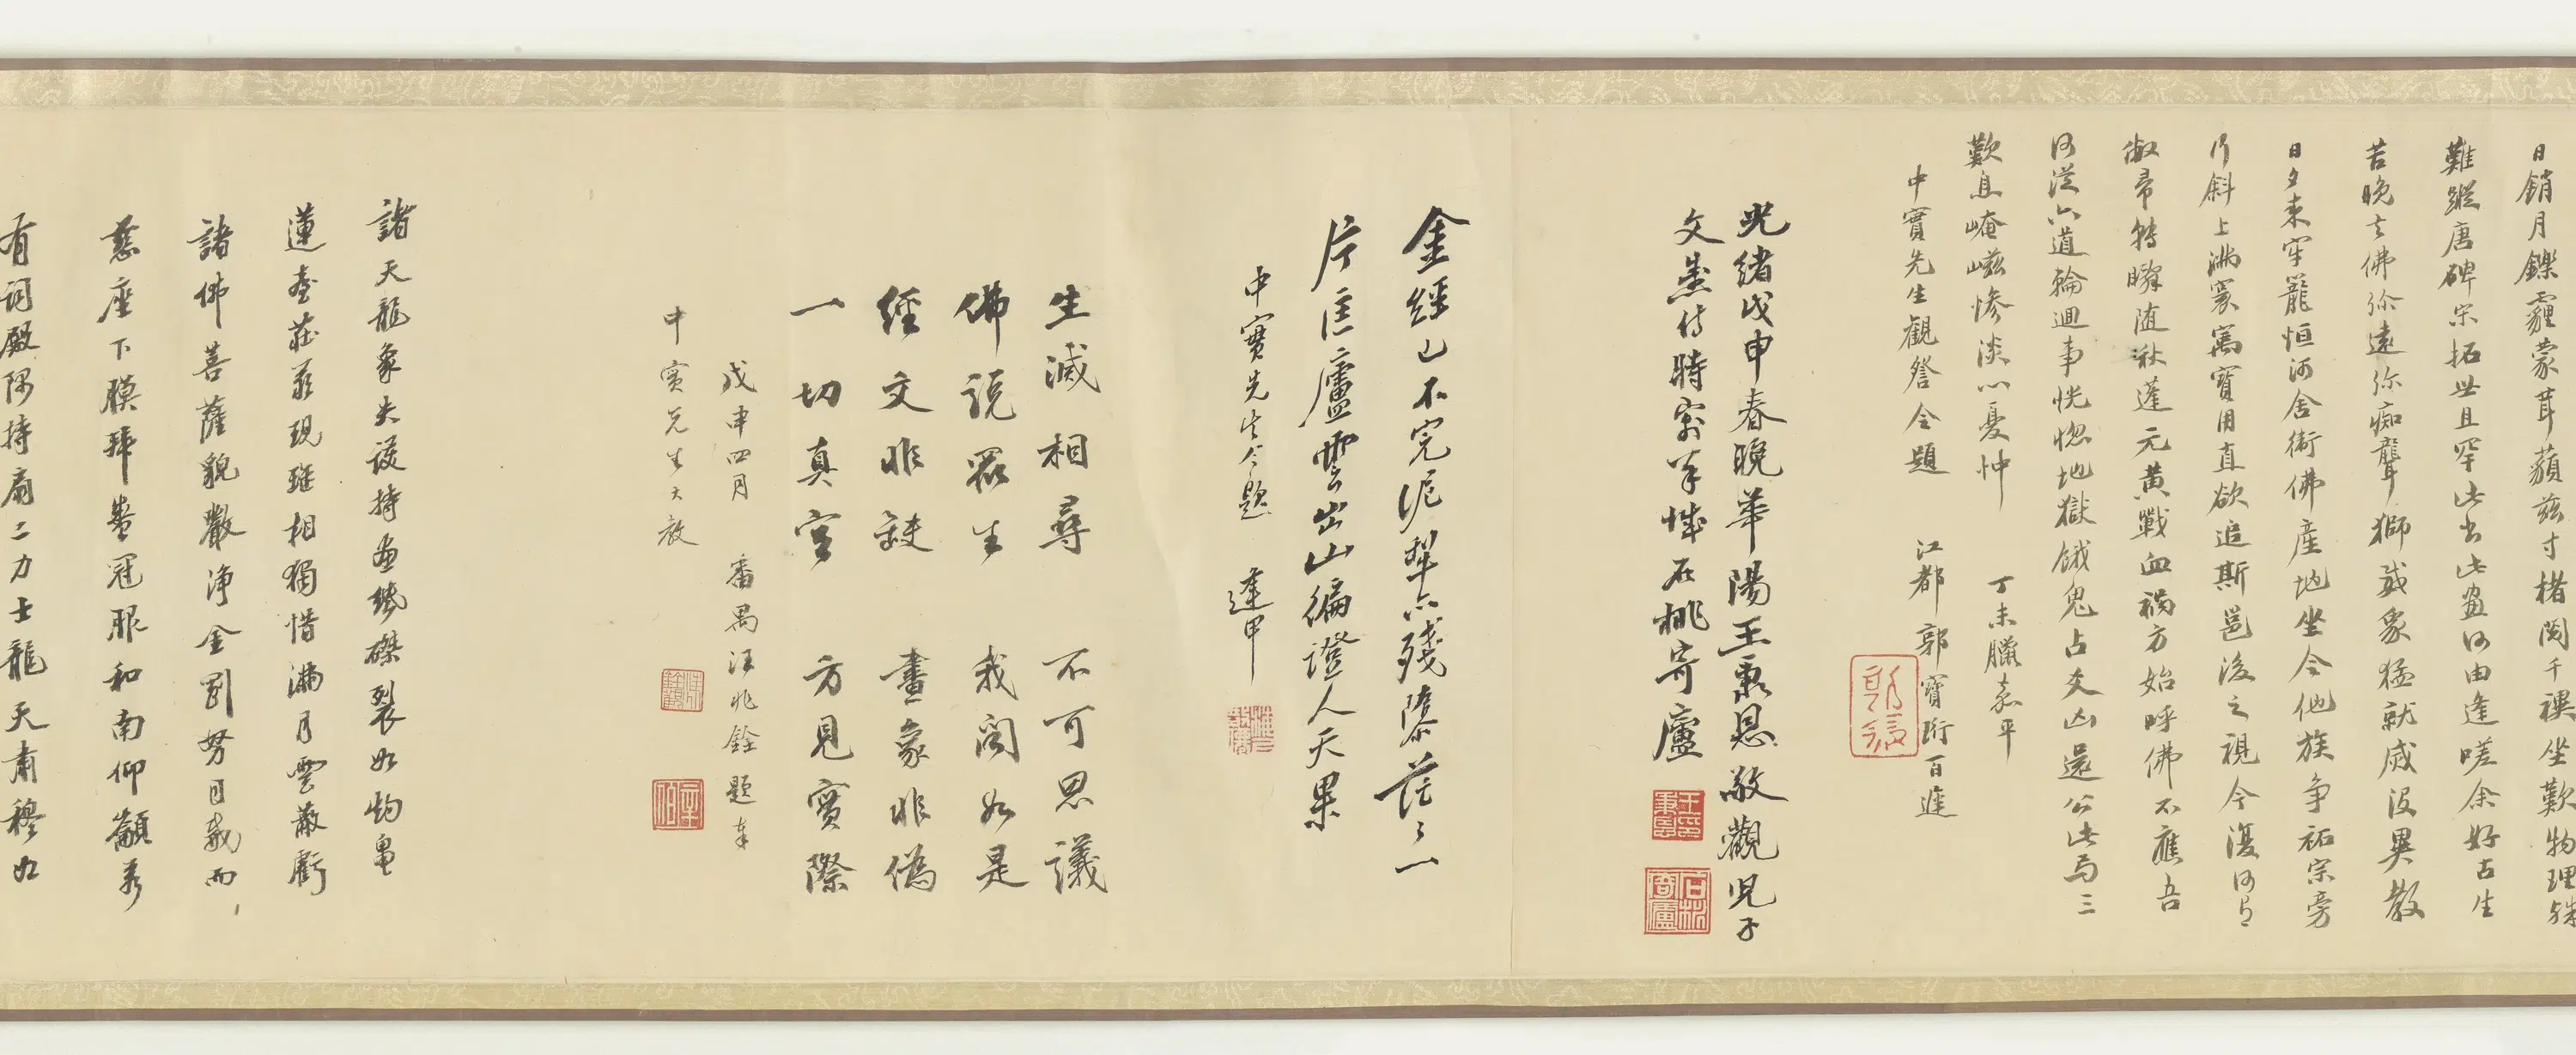 日銷月鑠霾蒙茸蘋玆寸楮閱千禩坐歎物理殊
難蹤唐碑宋拓世且罕此書此畫何由逢嗟余好古生
苦晚去佛弥遠弥痴聾獅威象猛就威沒異教
日夕來牢籠恒河舍衛佛產地坐令他族爭祏宗旁
行斜上滿寰寓寶用直欲追斯邕後之視今復何以
俶帚轉瞬随秋蓬元黃戰血禍方始呼佛不應吾
何從六道輪迴事恍惚地獄餓鬼占爻凶還公此局三
歎息崦嵫慘淡心憂忡 丁未臘嘉平
中實先生觀詧令題 江都郭寶珩百進
光緒戊申春晚華陽王秉恩敬觀兒子
文燾侍時寓羊城石桃寄廬
王印秉恩
金經已不完泥犁亦殘隳茫々一
片匡廬雲出山徧證人天果
中實先生令題 達甲
生滅相尋 不可思議
佛說眾生 我聞如是
經文非缺 畫象非偽
一切真空 方見實際
戊申四月 番禺汪兆銓題奉
中實兄先生大教
諸天龍象失護持畫絹磔裂如灼龜
蓮臺莊嚴現碓相獨惜滿月雲蔽虧
諸佛菩薩貌嚴淨金剛努目戟而
慈座下膜拜盡冠服和南仰籲若
有詞殿隅持扇二力士龍天肅穆如